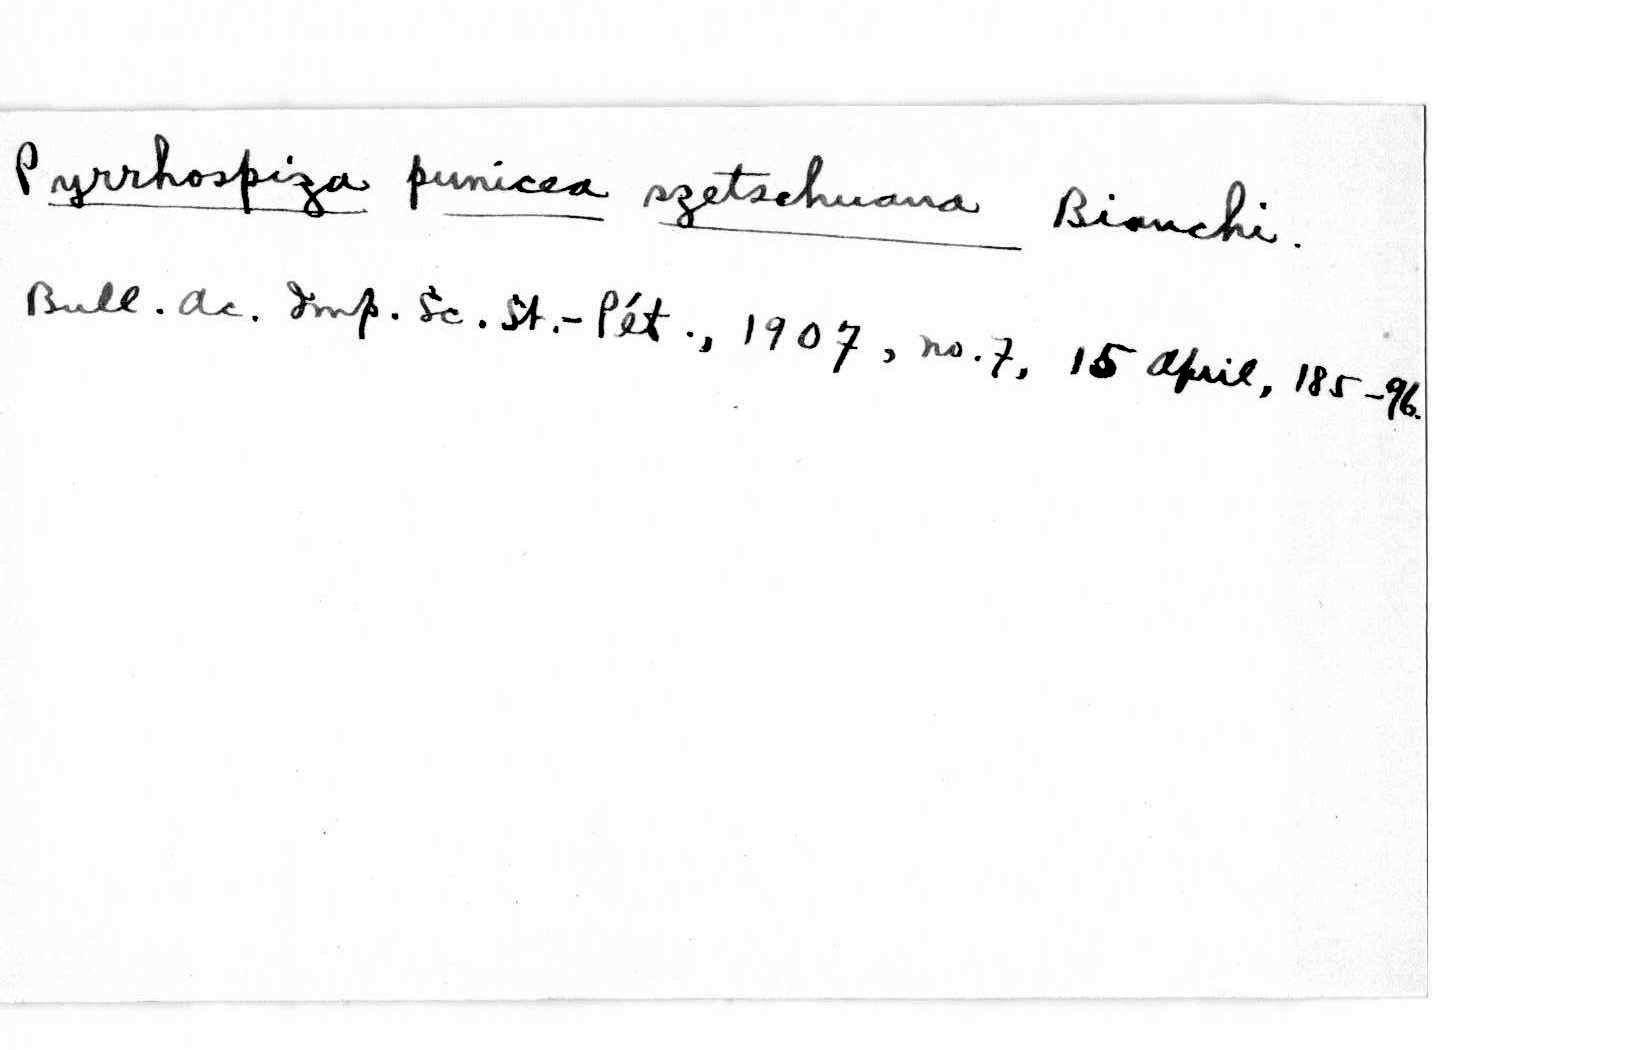 Pyrrhospiza punicea szetschuana Bianchi.
Bull. Ac. Imp. Sc. St.-Pét., 1907, no. 7, 15 April, 185-96.